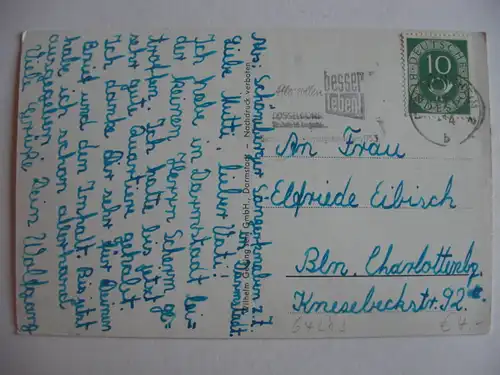 Abs. Schöneberger Sängerknaben z. Z.
in Darmstadt.
Liebe Mutti, lieber Vati!
Ich habe in Darmstadt lei-
der keinen Herrn Schirm ge-
troffen. Ich hatte bis jetzt
sehr gute Quartiere gehabt.
Ich danke Dir sehr für Deinen
Brief und den Inhalt. Bis jetzt
habe ich schon allerhand
ausgegeben.
Viele Grüße Dein Wolfgang
Wilhelm Gerling GmbH., Darmstadt - Nachdruck verboten
Alle wollen
besser
leben
DÜSSELDORF
DEUTSCHE BUNDESPOST
10
An Frau
Elfriede Eibisch
Bln. Charlottenbg.
Knesebeckstr. 92
€ 4.-